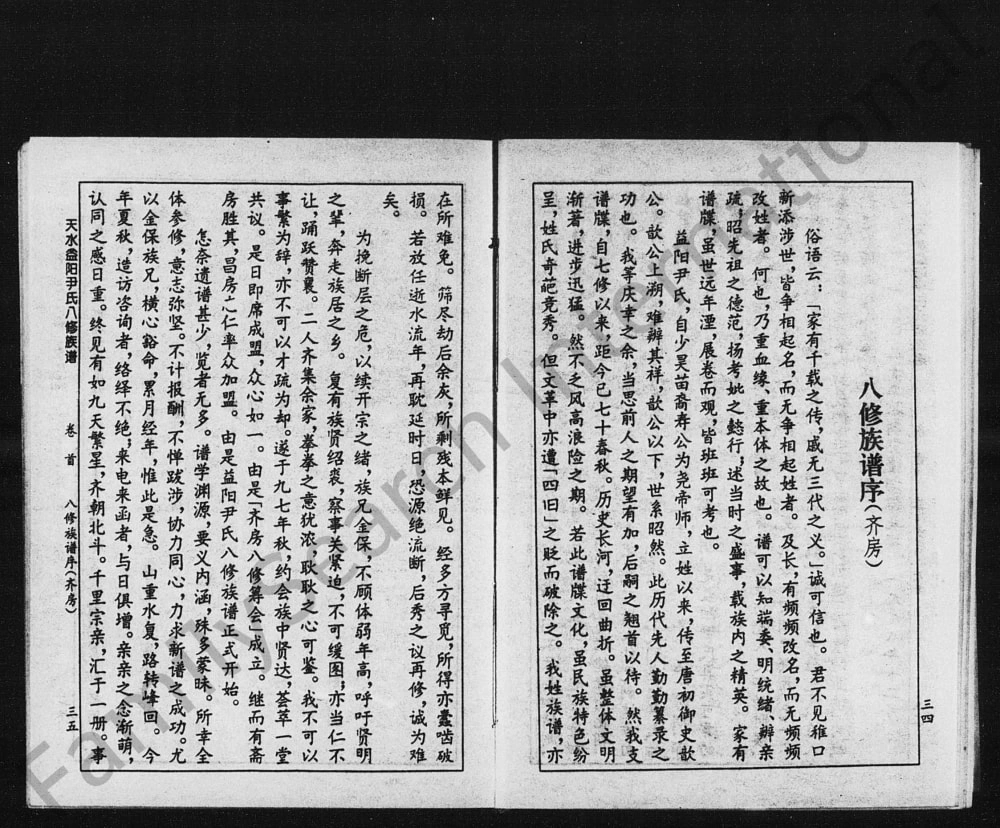 八修族谱序（齐房）
俗语云：「家有千载之传，戚无三代之义。」诚可信也。君不见稚口
新添涉世，皆争相起名，而无争相起姓者。及长，有频频改名，而无频频
改姓者。何也，乃重血缘、重本体之故也。谱可以知端委、明统绪、辨亲
疏；昭先祖之德范，扬考妣之懿行；述当时之盛事，载族内之精英。家有
谱牒，虽世远年湮，展卷而观，皆班班可考也。
益阳尹氏，自少昊苗裔寿公为尧帝师，立姓以来，传至唐初御史歆
公。歆公上溯，难辨其祥，歆公以下，世系昭然。此历代先人勤勤纂录之
功也。我等庆幸之余，当思前人之期望有加，后嗣之翘首以待。然我支
谱牒，自七修以来，距今已七十春秋。历史长河，迂回曲折。虽整体文明
渐著，进步迅猛。然不乏风高浪险之期。若此谱牒文化，虽民族特色纷
呈，姓氏奇葩竞秀。但文革中亦遭「四旧」之贬而破除之。我姓族谱，亦
三四
在所难免。筛尽劫后余灰，所剩残本鲜见。经多方寻觅，所得亦蠹啮破
损。若放任逝水流年，再耽延时日，恐源绝流断，后秀之议再修，诚为难
矣。
为挽断层之危，以续开宗之绪，族兄金保，不顾体弱年高，呼吁贤明
之辈，奔走族居之乡。复有族贤绍裘，察事关紧迫，不可缓图；亦当仁不
让，踊跃赞襄。二人齐集余家，拳拳之意犹浓，耿耿之心可鉴。我不可以
事繁为辞，亦不可以才疏为却。遂于九七年秋，约会族中贤达，荟萃一堂
共议。是日即席成盟，众心如一。由是「齐房八修筹会」成立。继而有斋
房胜其，昌房心仁率众加盟。由是益阳尹氏八修族谱正式开始。
怎奈遗谱甚少，览者无多。谱学渊源，要义内涵，殊多蒙昧。所幸全
体参修，意志弥坚。不计报酬，不惮跋涉，协力同心，力求新谱之成功。尤
以金保族兄，横心豁命，累月经年，惟此是急。山重水复，路转峰回。今
年夏秋，造访咨询者，络绎不绝；来电来函者，与日俱增。亲亲之念渐萌，
认同之感日重。终见有如九天繁星，齐朝北斗。千里宗亲，汇于一册。事
天水益阳尹氏八修族谱 卷首 八修族谱序（齐房） 三五
FamilySearch International